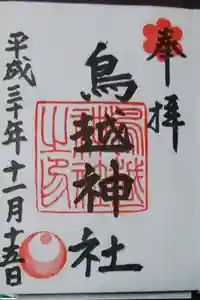 奉拝
鳥越神社
平成三十年十一月十五日